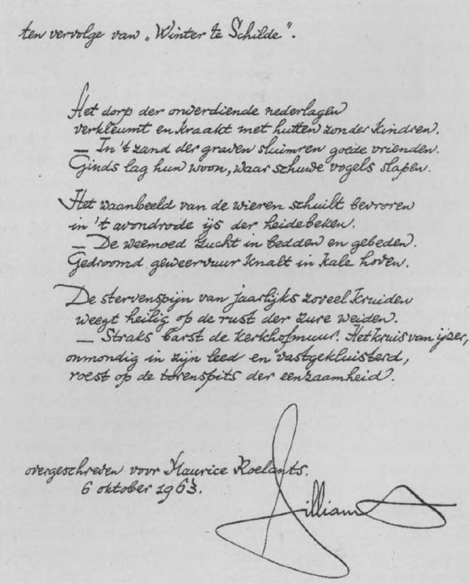 ten vervolge van „Winter te Schilde".
Het dorp der onverdiende nederlagen
verkleumt en kraakt met hutten zonder kindren.
— In 't zand der graven sluimren goede vrienden.
Ginds lag hun woon, waar schuwe vogels slapen.
Het waanbeeld van de wieren schuilt bevroren
in 't avondrode ijs der heidebeken.
— De weemoed zucht in bedden en gebeden.
Gedroomd geweervuur knalt in kale hoven.
De stervenspijn van jaarlijks zoveel kruiden
weegt heilig op de rust der zure weiden.
— Straks barst de kerkhofmuur. Het kruis van ijzer,
onmondig in zijn leed en vastgekluisterd,
roest op de torenspits der eenzaamheid.
overgeschreven voor Maurice Roelants.
6 oktober 1963.
Gilliams